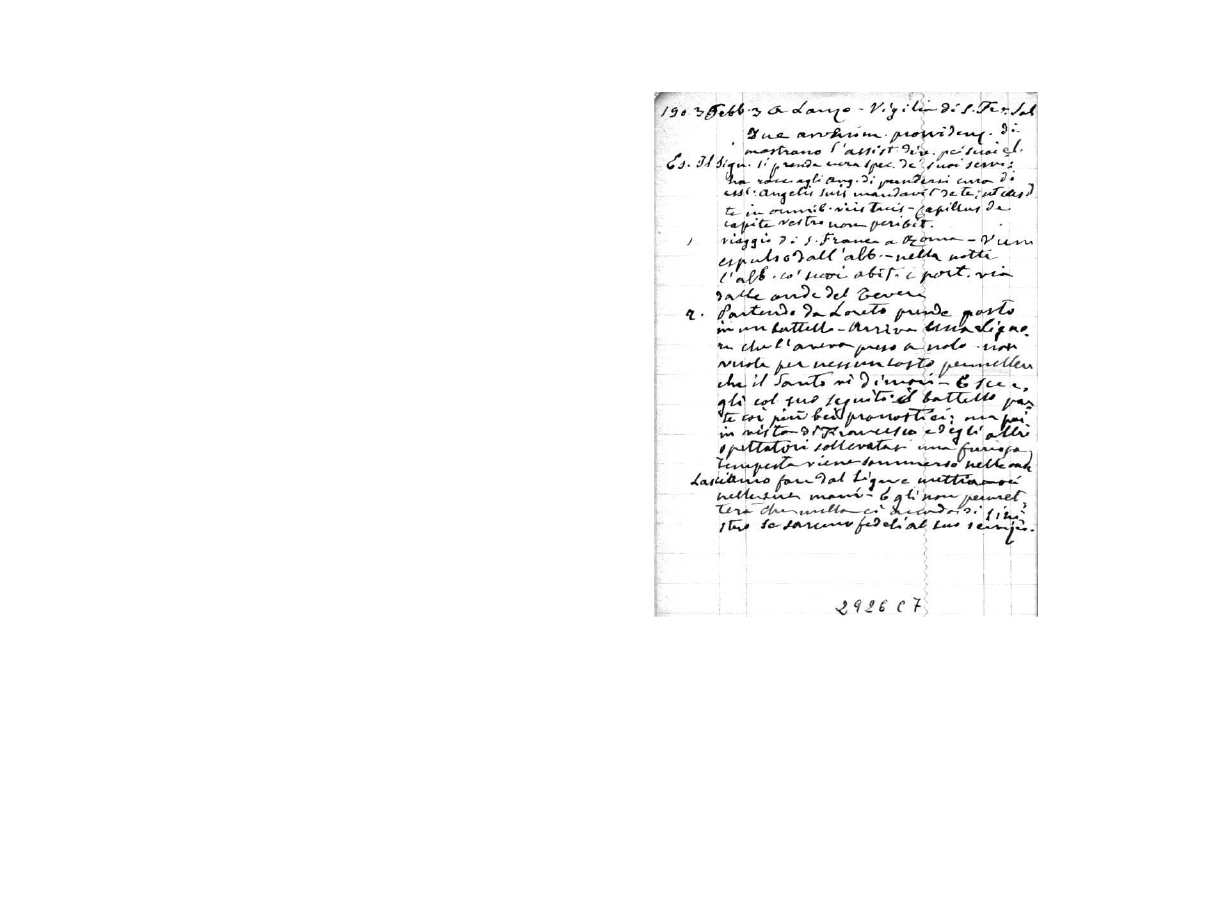 1903 Febb. 3 A Lanzo - Vigilia di S. Fr. Sal
Due avvenim. providenz. di
mostrano l'assist. div. pei suoi el.
Es. Il Sign. si prende cura spec. de' suoi servi;
ha racc. agli ang. di prendersi cura di
essi. Angelis suis mandavit de te, ut cust
te in omnib. viis tuis - capillus de
capite vestro non peribit.
1 viaggio di S. Franc. a Roma - Vien
espulso dall'alb. - nella notte
l'alb. co' suoi abit. è port. via
dalle onde del Tevere
2. Partendo da Loreto prende posto
in un battello - Arriva una Signo
ra che l'aveva preso a nolo non
vuole per nessun costo permettere
che il Santo vi dimori - Esce e
gli col suo seguito: il battello par
te coi più bei pronostici; ma poi
in vista di Francesco e degli altri
spettatori sollevatasi una furiosa
tempesta viene sommerso nelle onde
Lasciamo fare dal Sign. e mettiamoci
nelle sue mani - Egli non permet
terà che nulla ci accada di sini
stro se saremo fedeli al suo servizio.
2926 C7